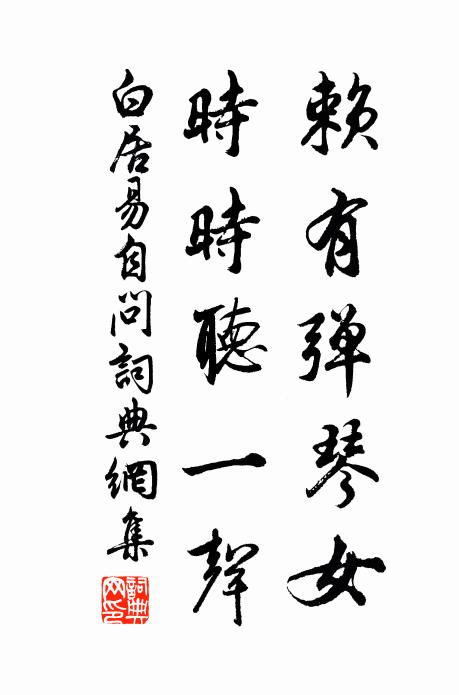 賴有彈琴女
時時聽一聲
白居易自問詞典網集
詞典网印